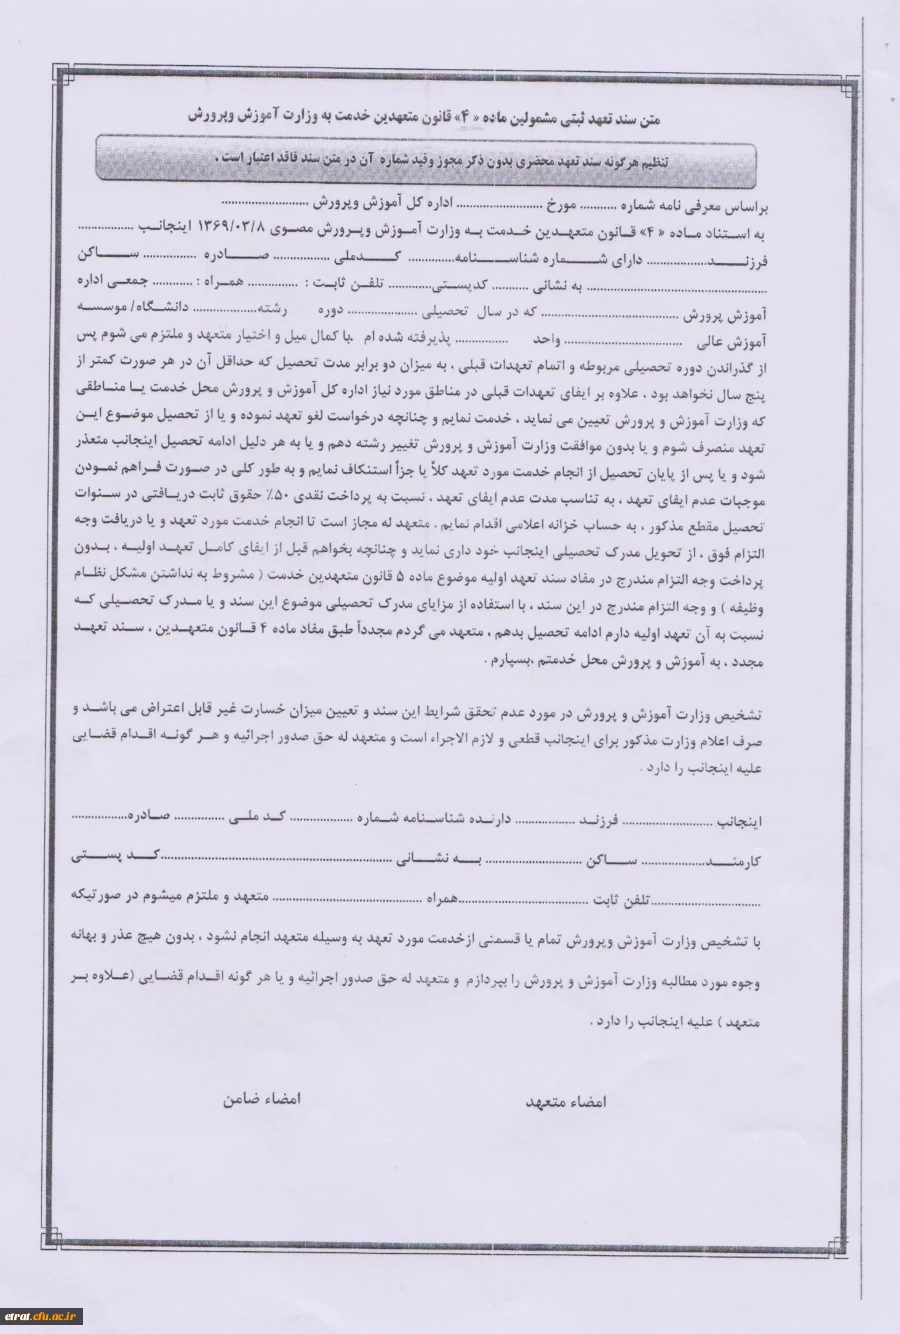 متن سند تعهد ثبتی مشمولین ماده « ۴» قانون متعهدین خدمت به وزارت آموزش وپرورش
تنظیم هرگونه سند تعهد محضری بدون ذکر مجوز وقید شماره آن در متن سند فاقد اعتبار است .
براساس معرفی نامه شماره ........... مورخ .......................... اداره کل آموزش وپرورش ..........................
به استناد ماده « ۴» قانون متعهدین خدمت به وزارت آموزش وپرورش مصوی ۱۳۶۹/۰۳/۸ اینجانب .................
فرزند.................. دارای شماره شناسنامه.............. کدملی ................. صادره ................ ساکن
...................................................... به نشانی ........... کدپستی............. تلفن ثابت : ............... همراه : ............ جمعی اداره
آموزش پرورش ......................................... که در سال تحصیلی ..................... دوره رشته................... دانشگاه/ موسسه
آموزش عالی ................................... واحد ................ پذیرفته شده ام .با کمال میل و اختیار متعهد و ملتزم می شوم پس
از گذراندن دوره تحصیلی مربوطه و اتمام تعهدات قبلی ، به میزان دو برابر مدت تحصیل که حداقل آن در هر صورت کمتر از
پنج سال نخواهد بود ، علاوه بر ایفای تعهدات قبلی در مناطق مورد نیاز اداره کل آموزش و پرورش محل خدمت یا مناطقی
که وزارت آموزش و پرورش تعیین می نماید ، خدمت نمایم و چنانچه درخواست لغو تعهد نموده و یا از تحصیل موضوع این
تعهد منصرف شوم و یا بدون موافقت وزارت آموزش و پرورش تغییر رشته دهم و یا به هر دلیل ادامه تحصیل اینجانب متعذر
شود و یا پس از پایان تحصیل از انجام خدمت مورد تعهد کلاً یا جزأ استنکاف نمایم و به طور کلی در صورت فراهم نمودن
موجبات عدم ایفای تعهد ، به تناسب مدت عدم ایفای تعهد ، نسبت به پرداخت نقدی ۵۰٪ حقوق ثابت دریافتی در سنوات
تحصیل مقطع مذکور ، به حساب خزانه اعلامی اقدام نمایم . متعهد له مجاز است تا انجام خدمت مورد تعهد و یا دریافت وجه
التزام فوق ، از تحویل مدرک تحصیلی اینجانب خود داری نماید و چنانچه بخواهم قبل از ایفای کامل تعهد اولیه ، بدون
پرداخت وجه التزام مندرج در مفاد سند تعهد اولیه موضوع ماده ۵ قانون متعهدین خدمت ( مشروط به نداشتن مشکل نظام
وظیفه ) و وجه التزام مندرج در این سند ، با استفاده از مزایای مدرک تحصیلی موضوع این سند و یا مدرک تحصیلی که
نسبت به آن تعهد اولیه دارم ادامه تحصیل بدهم ، متعهد می گردم مجدداً طبق مفاد ماده ۴ قانون متعهدین ، سند تعهد
مجدد ، به آموزش و پرورش محل خدمتم ،بسپارم .
تشخیص وزارت آموزش و پرورش در مورد عدم تحقق شرایط این سند و تعیین میزان خسارت غیر قابل اعتراض می باشد و
صرف اعلام وزارت مذکور برای اینجانب قطعی و لازم الاجراء است و متعهد له حق صدور اجرائیه و هر گونه اقدام قضایی
علیه اینجانب را دارد .
اینجانب ........................... فرزند .................. دارنده شناسنامه شماره ................... کد ملی ............... صادره.................
کارمند................... ساکن ............................. به نشانی .....................................................................کد پستی
.................................تلفن ثابت .......................................همراه ............................................. متعهد و ملتزم میشوم در صورتیکه
با تشخیص وزارت آموزش وپرورش تمام یا قسمتی ازخدمت مورد تعهد به وسیله متعهد انجام نشود ، بدون هیچ عذر و بهانه
وجوه مورد مطالبه وزارت آموزش و پرورش را بپردازم و متعهد له حق صدور اجرائیه و یا هر گونه اقدام قضایی (علاوه بر
متعهد ) علیه اینجانب را دارد .
امضاء متعهد امضاء ضامن
etrat.cfu.ac.ir